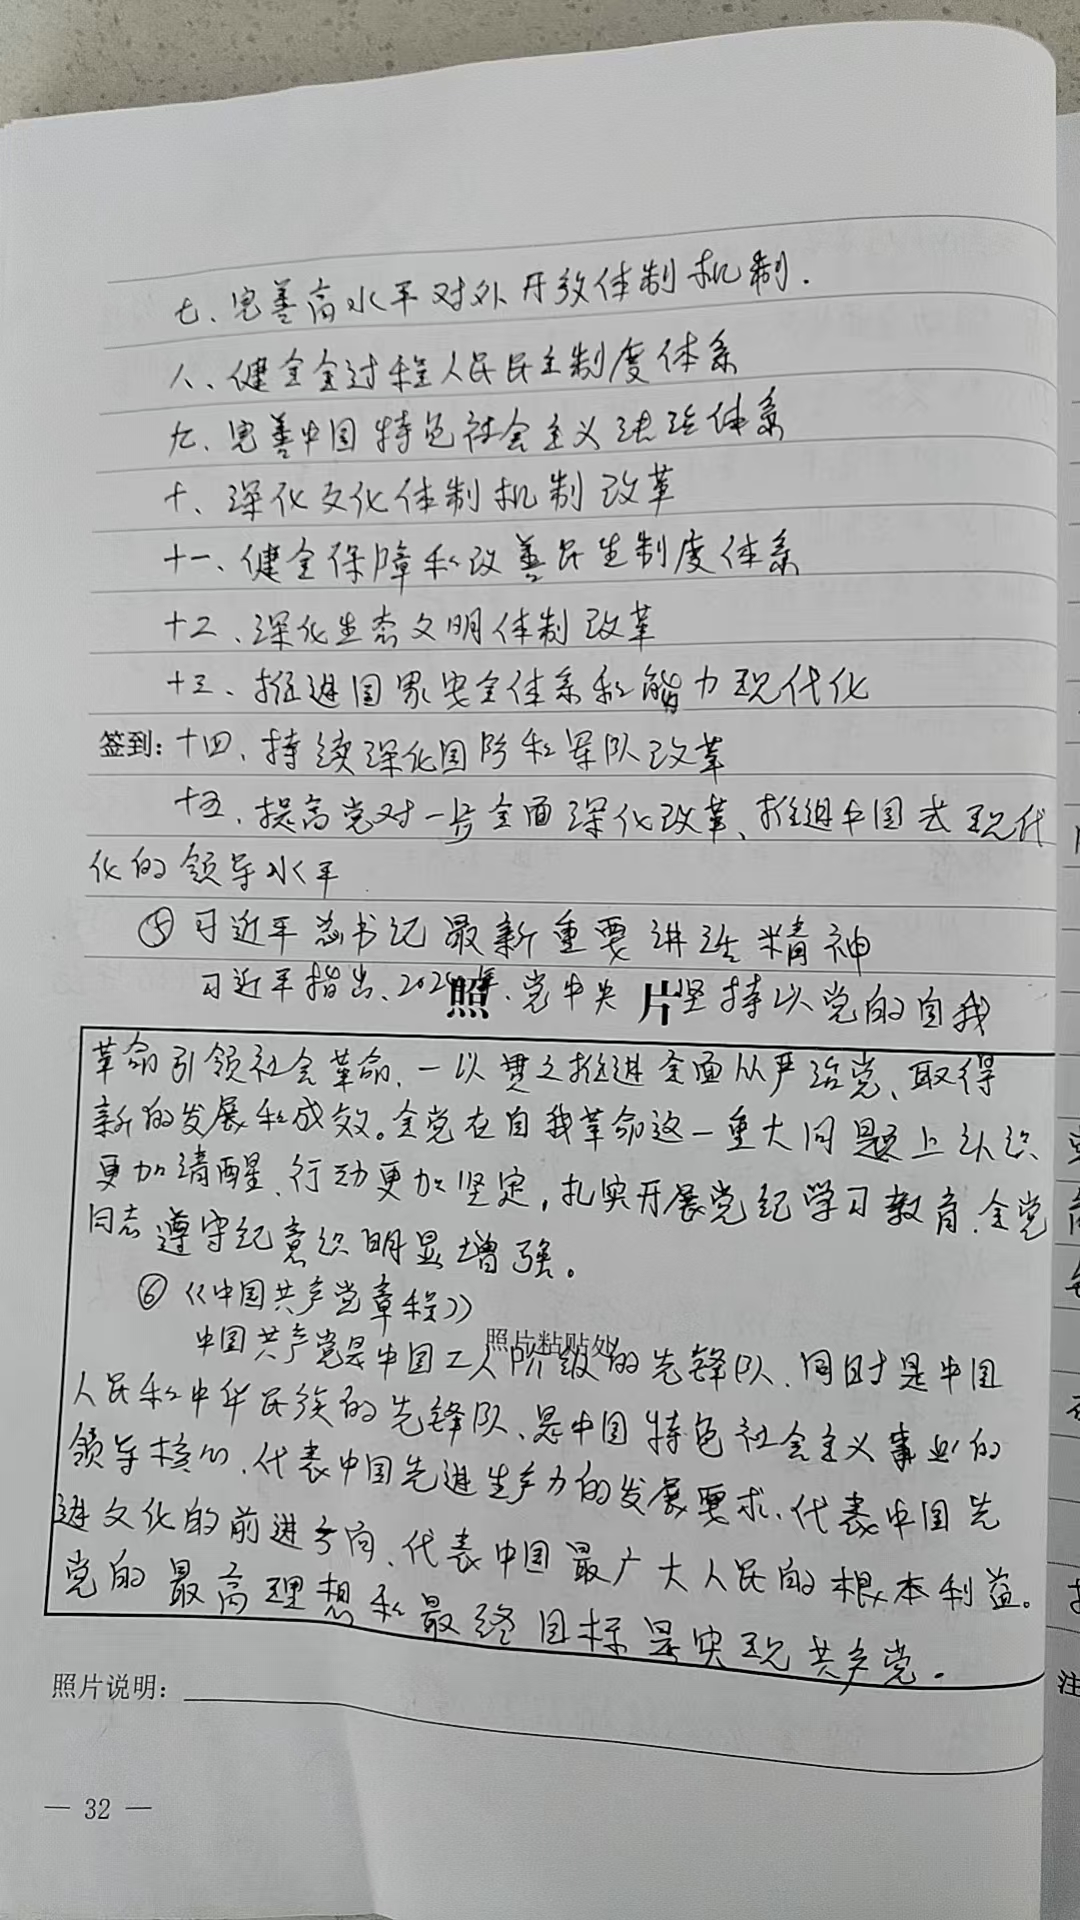 七、完善高水平对外开放体制机制.
八、健全全过程人民民主制度体系
九、完善中国特色社会主义法治体系
十、深化文化体制机制改革
十一、健全保障和改善民生制度体系
十二、深化生态文明体制改革
十三、推进国家安全体系和能力现代化
签到: 十四、持续深化国防和军队改革
十五、提高党对一号全面深化改革、推进中国式现代
化的领导水平
⑤ 习近平总书记最新重要讲话精神
习近平指出、2024年、党中央坚持以党的自我
照 片
革命引领社会革命、一以贯之推进全面从严治党、取得
新的发展和成效。全党在自我革命这一重大问题上认识
更加清醒、行动更加坚定,扎实开展党纪学习教育、全党
同志遵守纪意识明显增强。
⑥ 《中国共产党章程》
照片粘贴处
中国共产党是中国工人阶级的先锋队、同时是中国
人民和中华民族的先锋队、是中国特色社会主义事业的
领导核心、代表中国先进生产力的发展要求、代表中国先
进文化的前进方向、代表中国最广大人民的根本利益。
党的最高理想和最终目标是实现共产党.
照片说明:
— 32 —
注